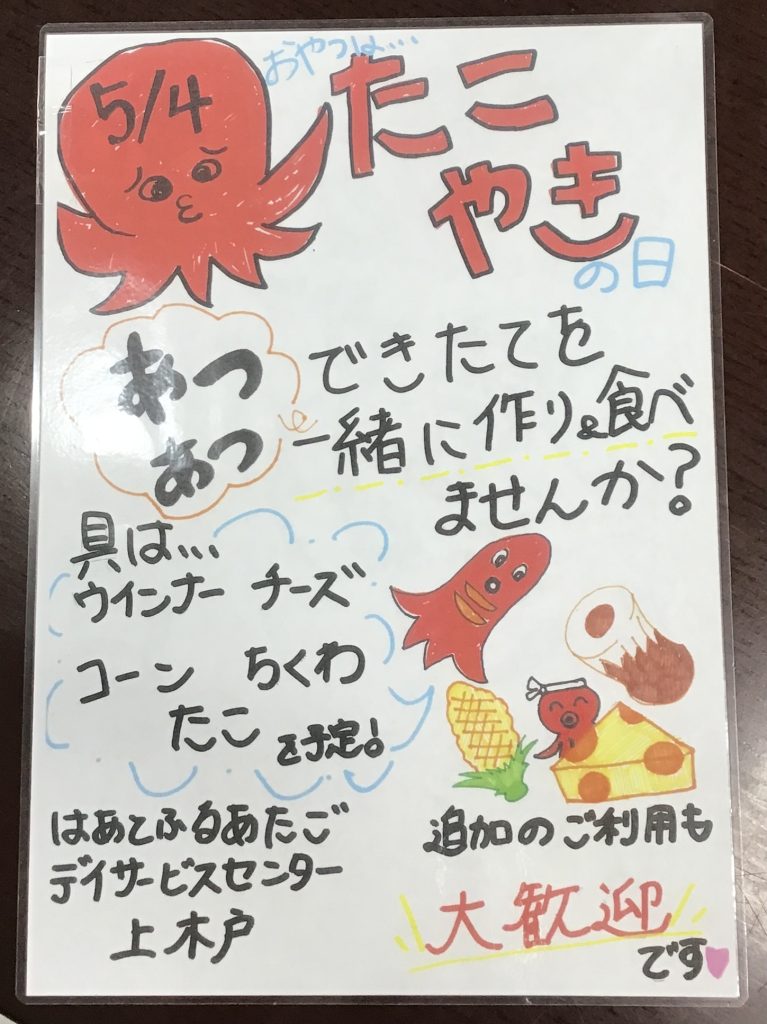 5/4
おやつは…
たこ
やき
の日
あつ
あつ
できたてを
一緒に作り&食べ
ませんか?
具は…
ウインナー チーズ
コーン ちくわ
たこ を予定!
はあとふるあたご
デイサービスセンター
上木戸
追加のご利用も
大歓迎
です